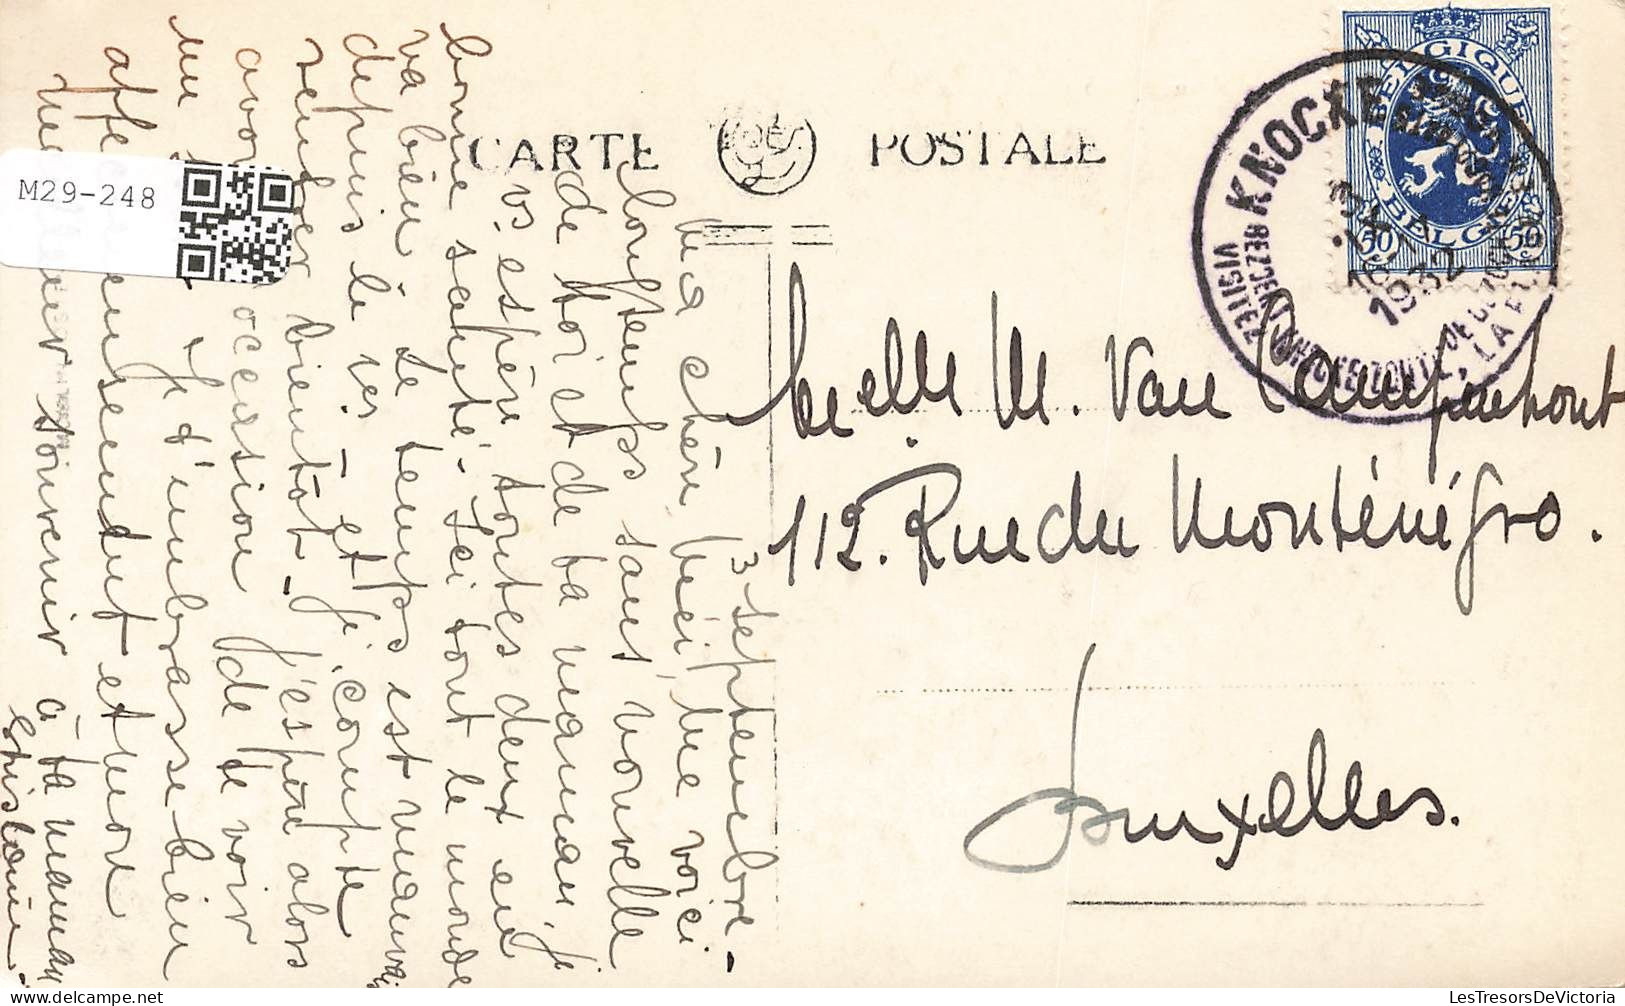 CARTE POSTALE
M29-248
BELGIQUE
BELGIE
50c 50c
KNOCKE
VISITEZ
1932
3 septembre -
Ma chère Méi, me voici
longtemps sans nouvelle
de toi et de ta maman, je
vs espère toutes deux en
bonne santé - Ici tout le monde
va bien - Le temps est mauvais
depuis le 1er - et je compte
rentrer bientôt - j'espère alors
avoir occasion de te voir
un
Je t'embrasse bien
affectueusement et mon
meilleur souvenir à ta maman
Melle M. Van Campenhout
112. Rue du Monténégro.
Bruxelles.
LesTresorsDeVictoria